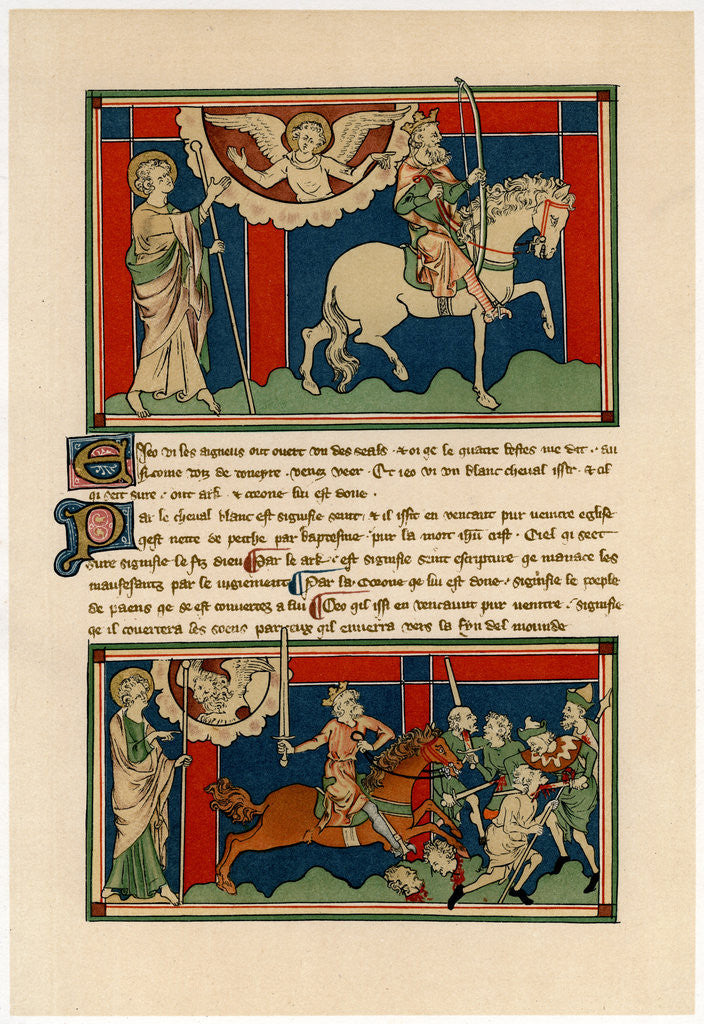 E Jeo vi les aigneus out overt un des seals · & oi qe le quatre bestes me dit · au
si come voiz de toneyre · venez veer · Et ieo vi un blanc cheval issir · & cil
qi seit sure · out ark · & corone lui est done ·
Par le cheval blanc est signifie seint · & il issit en vencant pur veintre eglise
qest nette de peche par baptesme · pur la mort ihu crist · Ciel qi seet
sure signifie le fiz dieu Par le ark · est signifie seint escripture qe manace les
maufesantz par le iugiement Par la corone qe lui est done · signifie le poeple
de paens qe se est convertez a lui Ceo qil issi en vencaunt pur veintre · signifie
qe il covertera les soens par ceux qil enverra vers la fyn del mounde